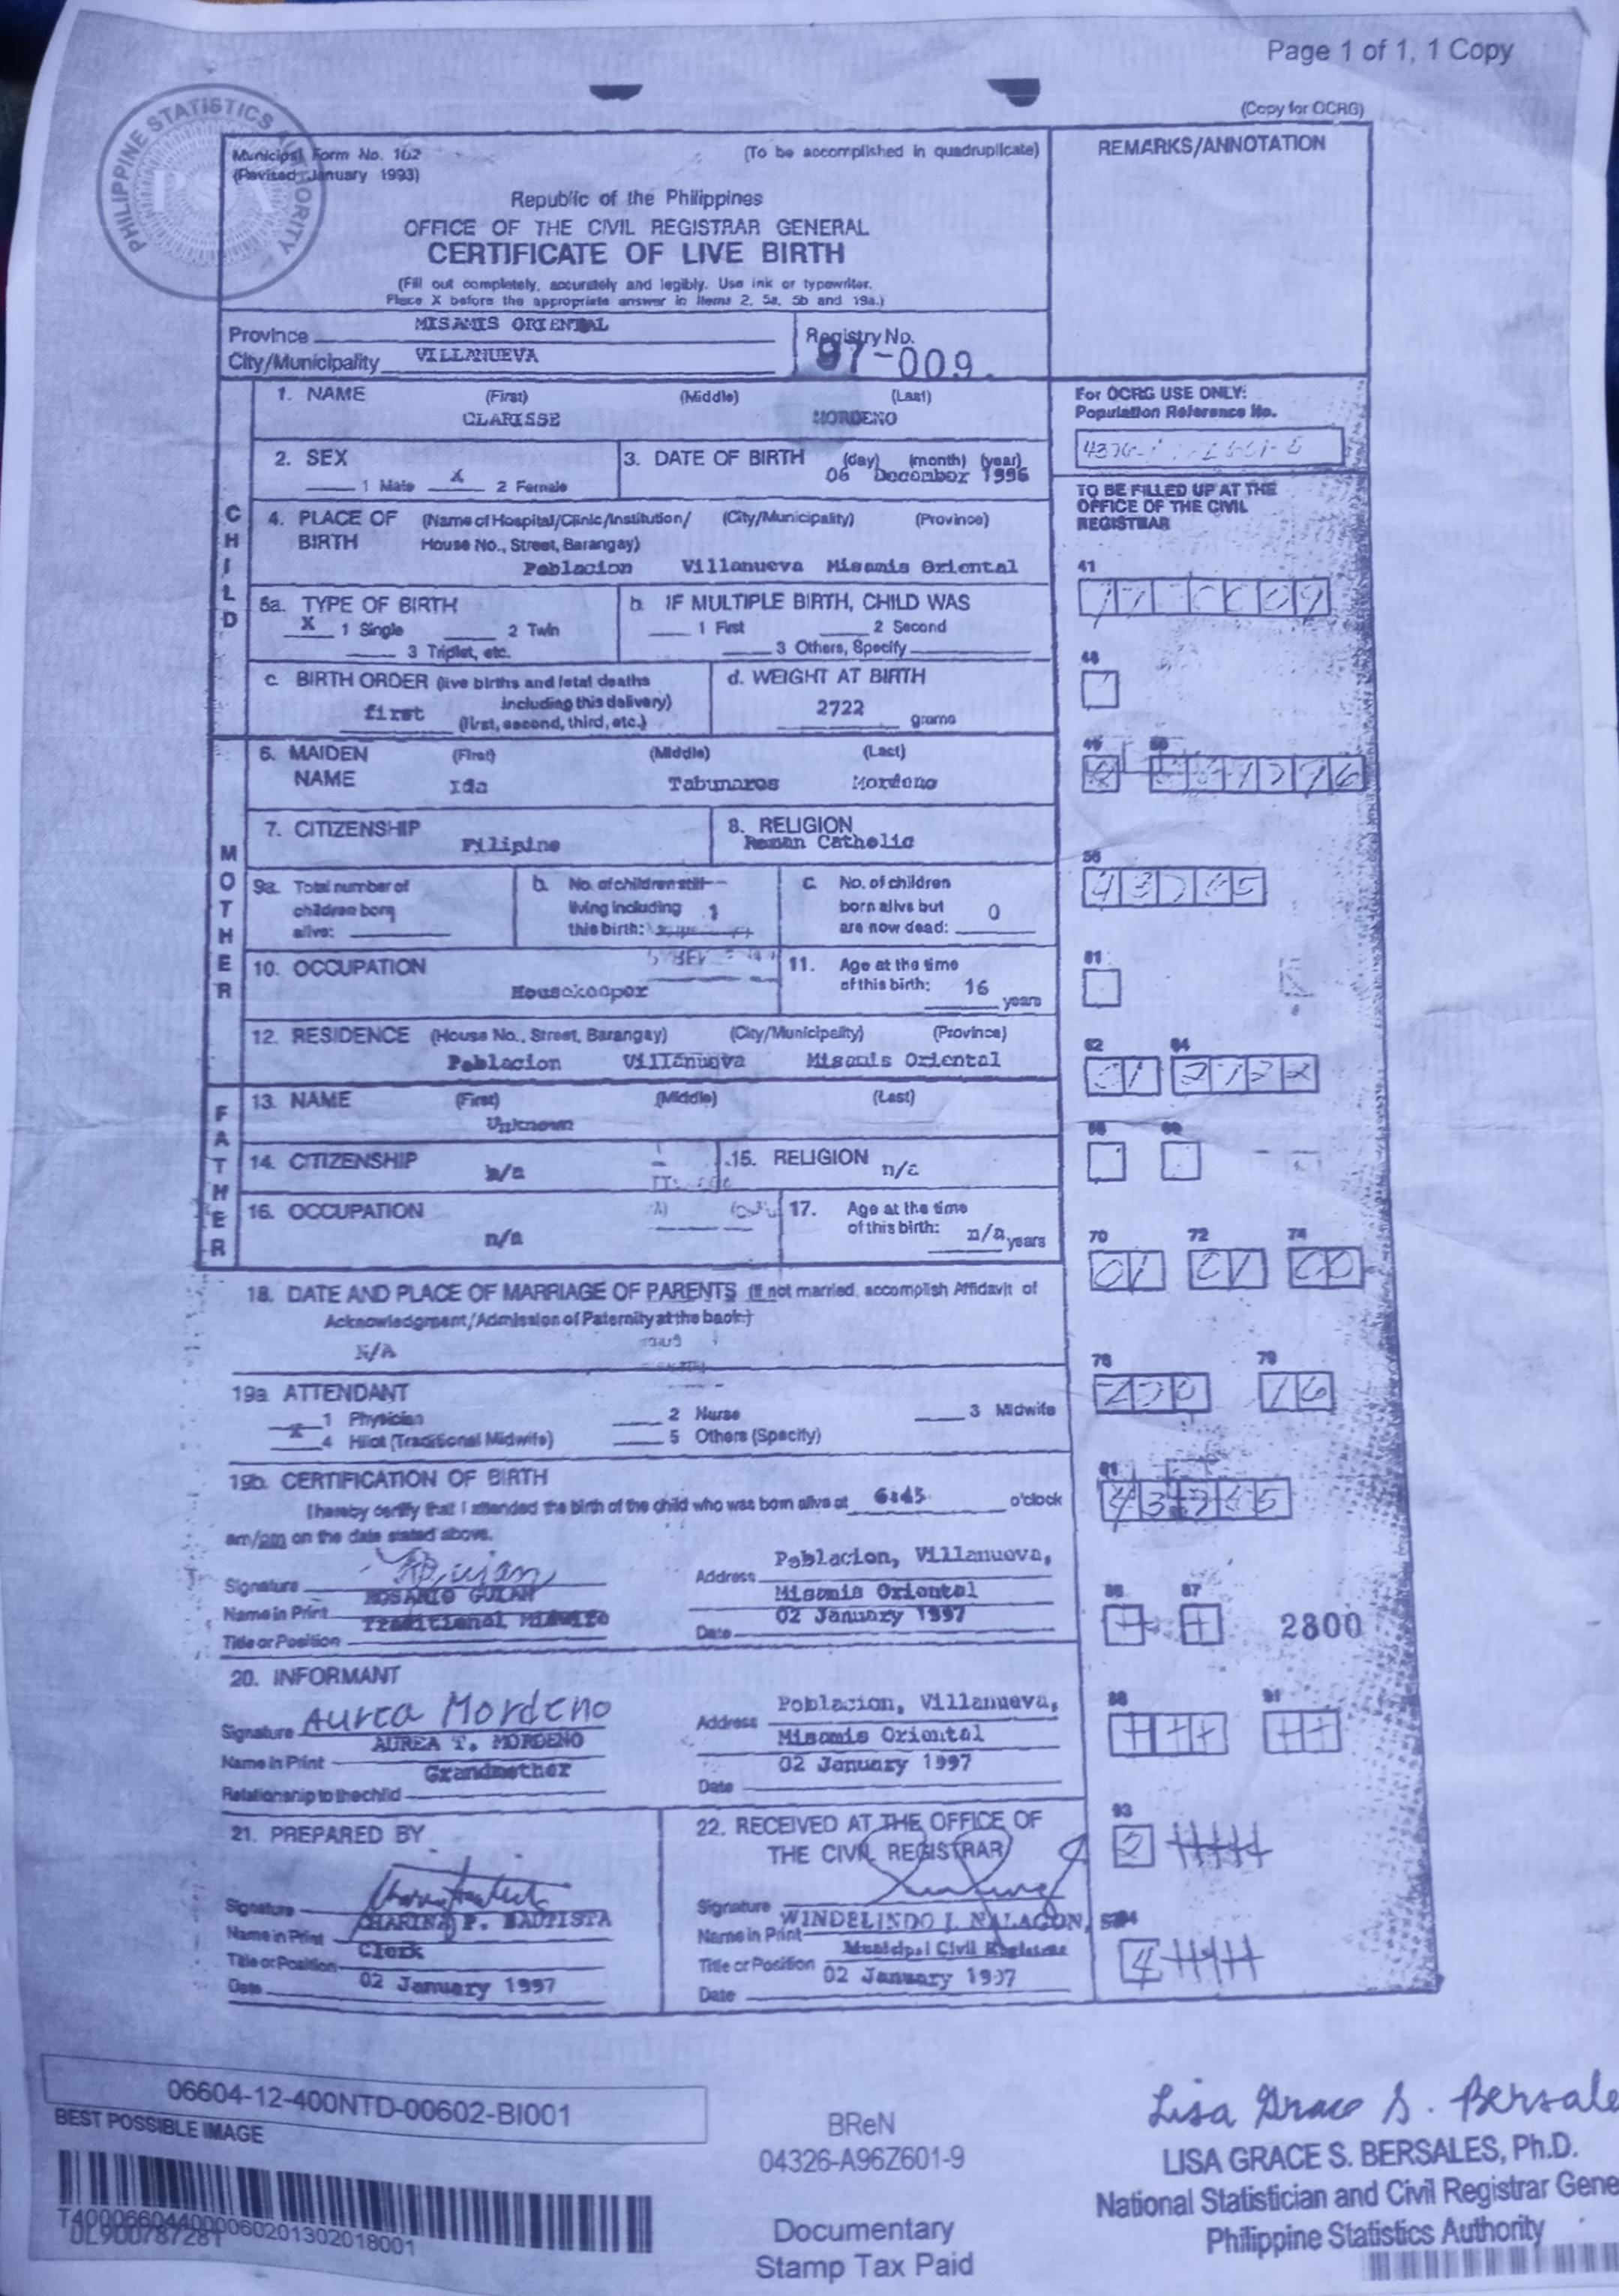 Page 1 of 1, 1 Copy
(Copy for OCRG)
PHILIPPINE STATISTICS AUTHORITY
PSA
Municipal Form No. 102
(Revised January 1993)
(To be accomplished in quadruplicate)
REMARKS/ANNOTATION
Republic of the Philippines
OFFICE OF THE CIVIL REGISTRAR GENERAL
CERTIFICATE OF LIVE BIRTH
(Fill out completely, accurately and legibly. Use ink or typewriter.
Place X before the appropriate answer in items 2, 5a, 5b and 19a.)
Province MISAMIS ORIENTAL
City/Municipality VILLANUEVA
Registry No.
97-009
CHILD
1. NAME (First) (Middle) (Last)
CLARISSE MORDENO
For OCRG USE ONLY:
Population Reference No.
2. SEX
1 Male X 2 Female
3. DATE OF BIRTH (day) (month) (year)
06 December 1996
TO BE FILLED UP AT THE
OFFICE OF THE CIVIL
REGISTRAR
4. PLACE OF BIRTH (Name of Hospital/Clinic/Institution/ (City/Municipality) (Province)
House No., Street, Barangay)
Poblacion Villanueva Misamis Oriental
41
5a. TYPE OF BIRTH
X 1 Single 2 Twin
3 Triplet, etc.
b. IF MULTIPLE BIRTH, CHILD WAS
1 First 2 Second
3 Others, Specify
48
c. BIRTH ORDER (live births and fetal deaths
including this delivery)
first (first, second, third, etc.)
d. WEIGHT AT BIRTH
2722 grams
MOTHER
6. MAIDEN NAME (First) (Middle) (Last)
Ida Mordeno
49 50
7. CITIZENSHIP
Filipino
8. RELIGION
Roman Catholic
56
9a. Total number of
children born
alive:
b. No. of children still
living including
this birth: 1
c. No. of children
born alive but
are now dead: 0
10. OCCUPATION
Housekeeper
11. Age at the time
of this birth: 16 years
61
12. RESIDENCE (House No., Street, Barangay) (City/Municipality) (Province)
Poblacion Villanueva Misamis Oriental
62 64
01 2722
FATHER
13. NAME (First) (Middle) (Last)
Unknown
68 69
14. CITIZENSHIP
n/a
15. RELIGION n/a
16. OCCUPATION
n/a
17. Age at the time
of this birth: n/a years
70 72 74
01 01 00
18. DATE AND PLACE OF MARRIAGE OF PARENTS (If not married, accomplish Affidavit of
Acknowledgment/Admission of Paternity at the back)
N/A
76 79
16
19a ATTENDANT
1 Physician 2 Nurse 3 Midwife
X 4 Hilot (Traditional Midwife) 5 Others (Specify)
19b. CERTIFICATION OF BIRTH
I hereby certify that I attended the birth of the child who was born alive at 6:45 o'clock
am/pm on the date stated above.
81
Signature
Name in Print ROSARIO
Title or Position Traditional Midwife
Address Poblacion, Villanueva,
Misamis Oriental
Date 02 January 1997
86 87
2800
20. INFORMANT
Signature Aurea Mordeno
Name in Print AUREA T. MORDENO
Relationship to the child Grandmother
Address Poblacion, Villanueva,
Misamis Oriental
Date 02 January 1997
88 91
21. PREPARED BY
Signature
Name in Print P. BAUTISTA
Title or Position Clerk
Date 02 January 1997
22. RECEIVED AT THE OFFICE OF
THE CIVIL REGISTRAR
Signature
Name in Print WINDELINDO J. NALAGON,
Title or Position Municipal Civil Registrar
Date 02 January 1997
93
2
94
4
06604-12-400NTD-00602-BI001
BEST POSSIBLE IMAGE
BReN
04326-A96Z601-9
Documentary
Stamp Tax Paid
Lisa Grace S. Bersales
LISA GRACE S. BERSALES, Ph.D.
National Statistician and Civil Registrar Gene
Philippine Statistics Authority